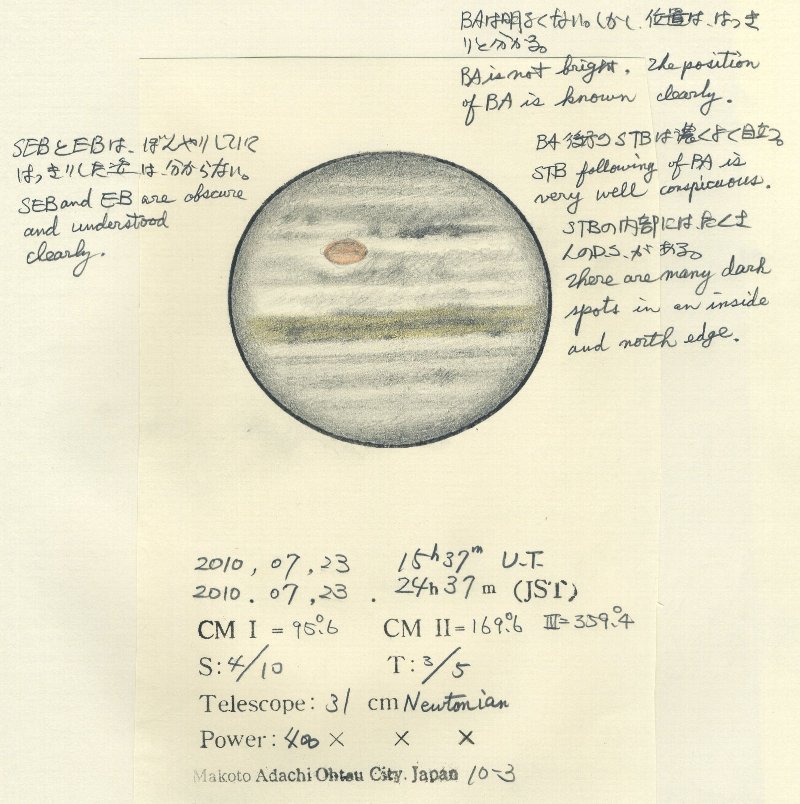 BAは明るくない。しかし、位置は、はっき
りと分かる。
BA is not bright. The position
of BA is known clearly.
SEBとEBは、ぼんやりしていて
はっきりした姿は、分からない。
SEB and EB are obscure
and understood
clearly.
BA 後方のSTBは濃くよく目立つ。
STB following of BA is
very well conspicuous.
STBの内部には、たくさ
んのD.S.がある。
There are many dark
spots in an inside
and north edge.
2010, 07, 23 15h37m U.T.
2010. 07, 23 . 24h37m (JST)
CM I = 95°.6 CM II=169°.6 III=359°.4
S: 4/10 T: 3/5
Telescope: 31 cm Newtonian
Power: 400 × × ×
Makoto Adachi Ohtsu City. Japan 10-3